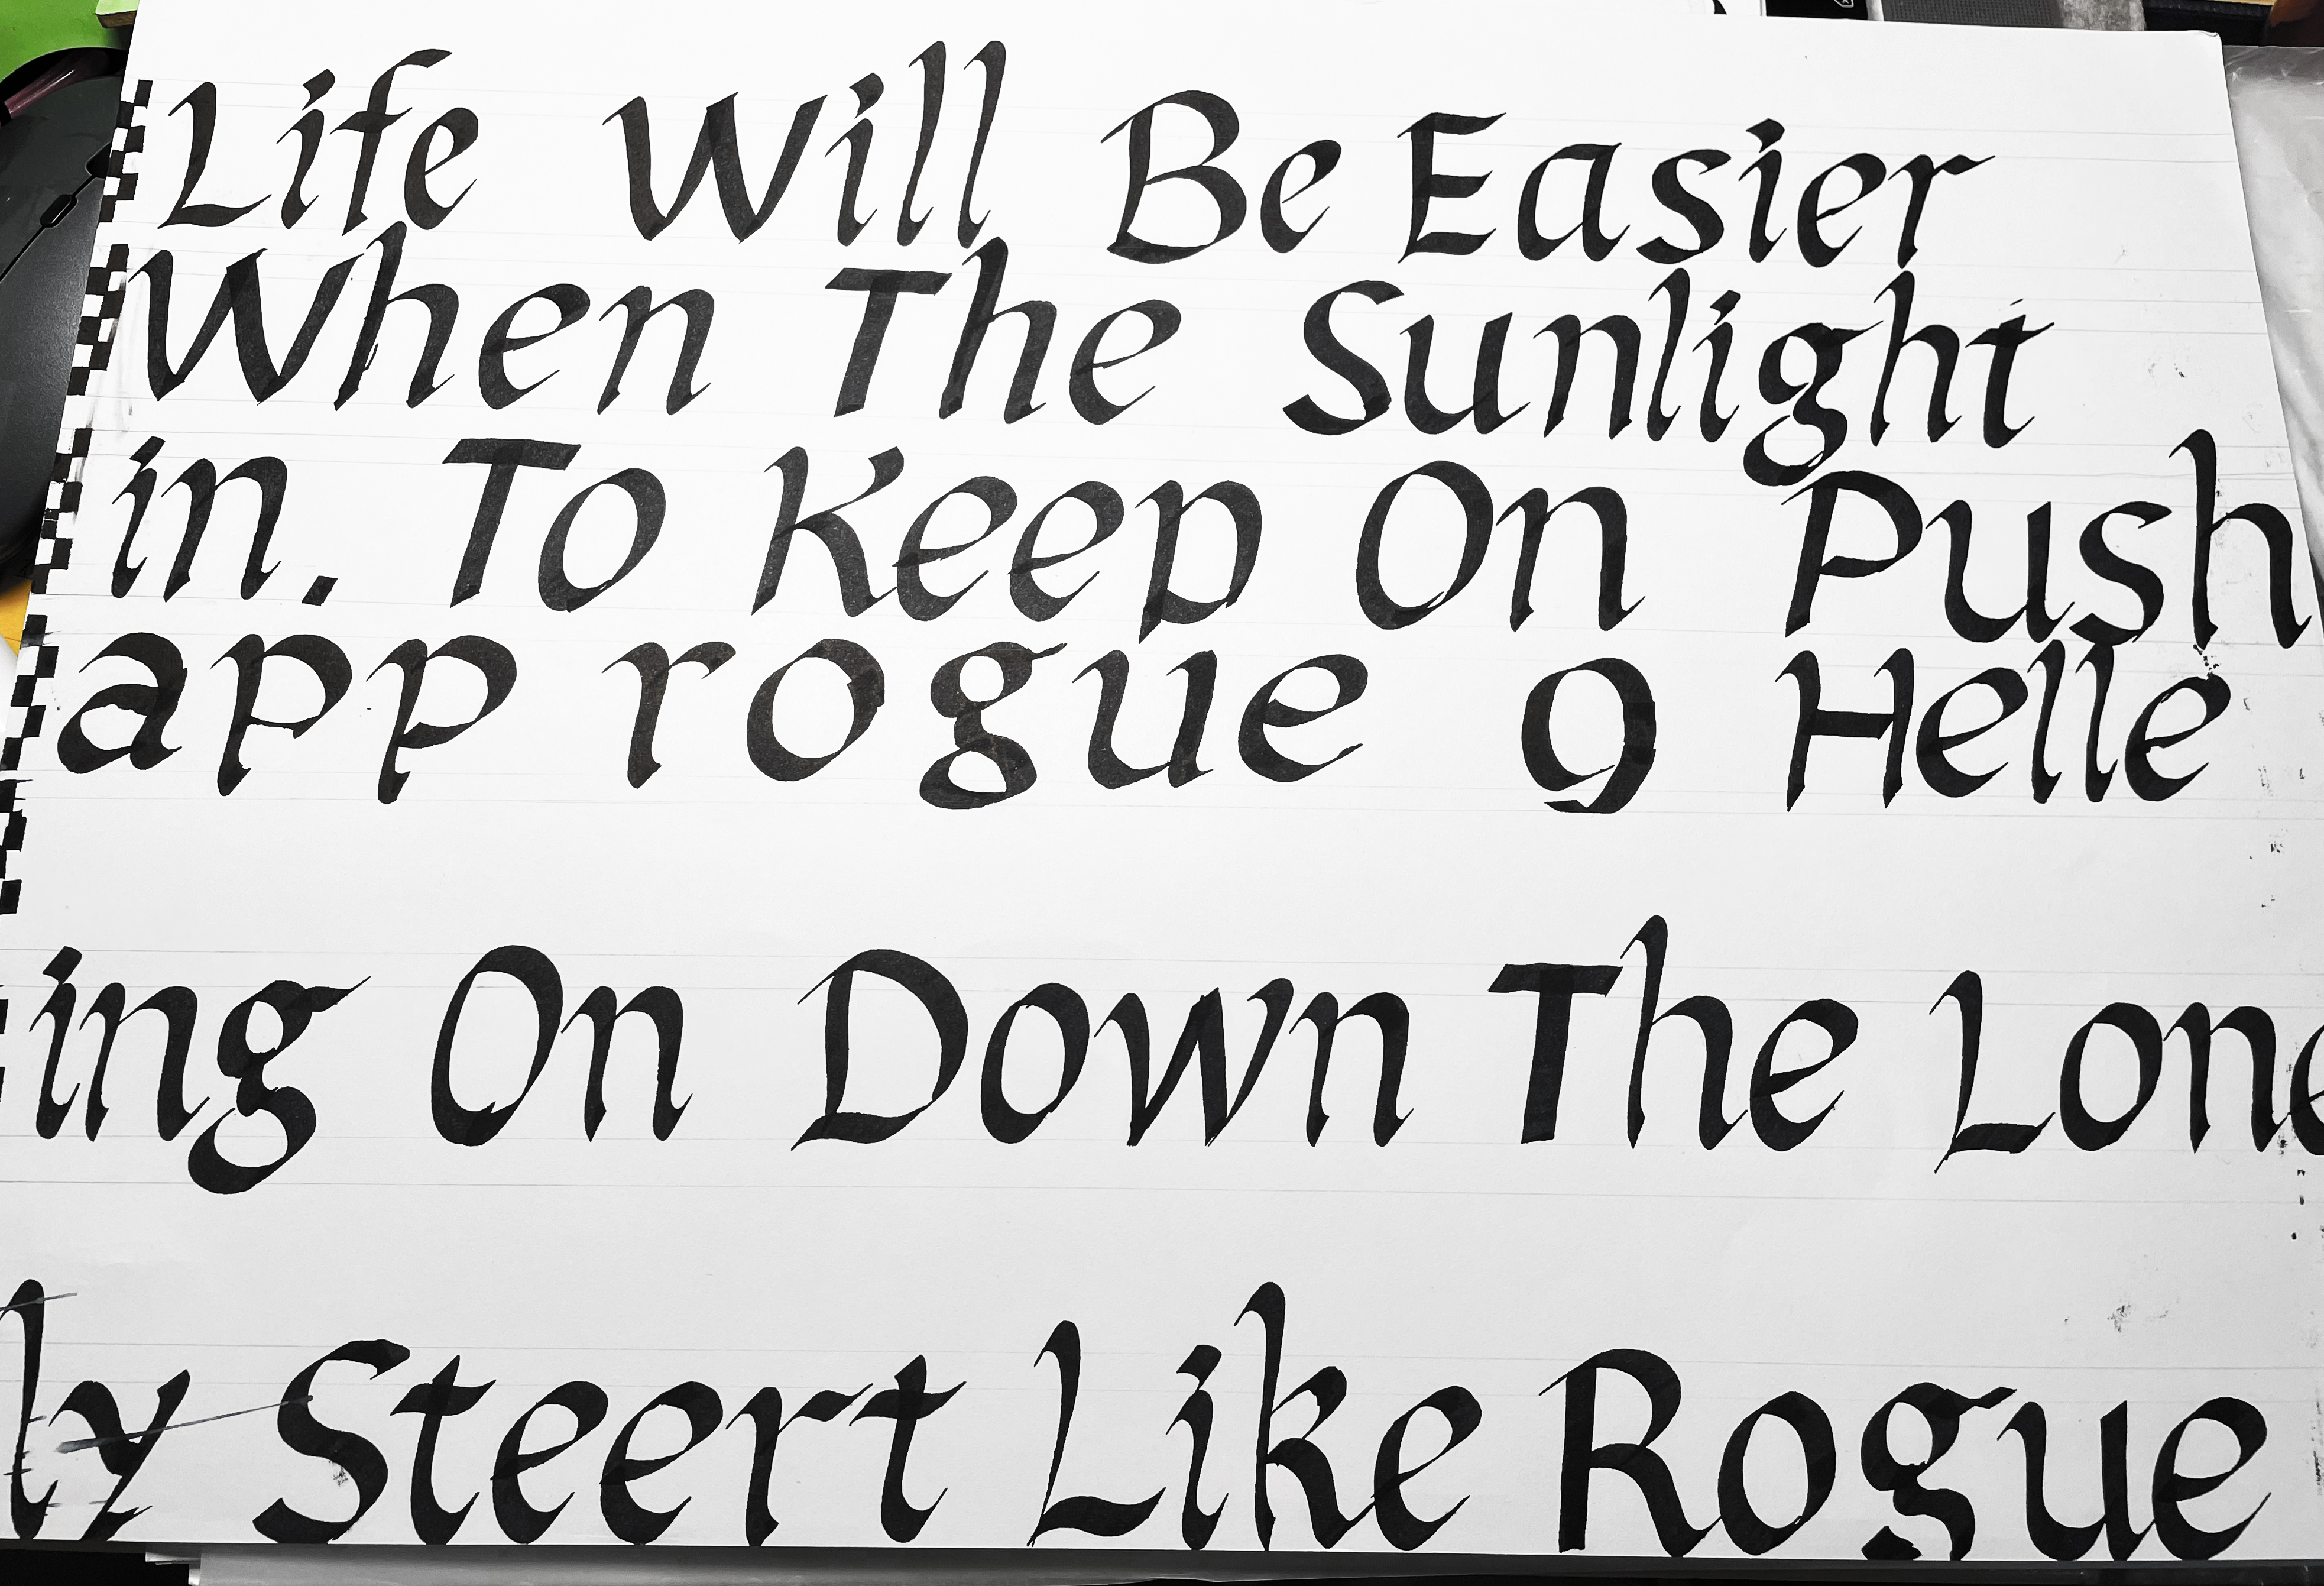 Life Will Be Easier
When The Sunlight
in. To Keep On Push
app rogue 9 Helle
ing On Down The Lone
ly Steert Like Rogue